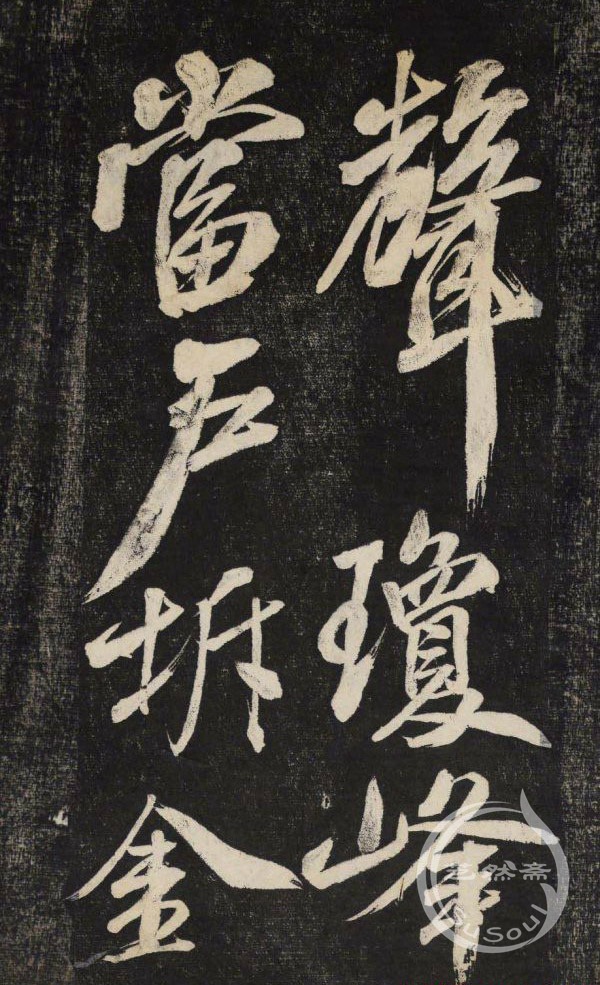 聲瓊峰
當戶坼金
然斋
SuSoul